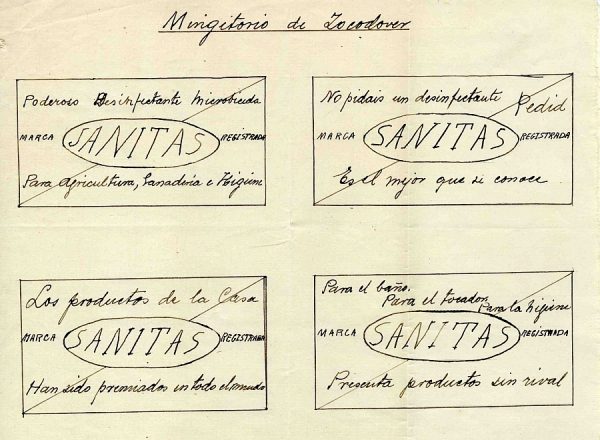 Mingitorio de Zocodover
Poderoso Desinfectante Microbicida
MARCA SANITAS REGISTRADA
Para Agricultura, Ganadería e Higiene
No pidais un desinfectante
Pedid
MARCA SANITAS REGISTRADA
Es el mejor que se conoce
Los productos de la Casa
MARCA SANITAS REGISTRADA
Han sido premiados en todo el mundo
Para el baño.
Para el tocador
Para la higiene
MARCA SANITAS REGISTRADA
Presenta productos sin rival